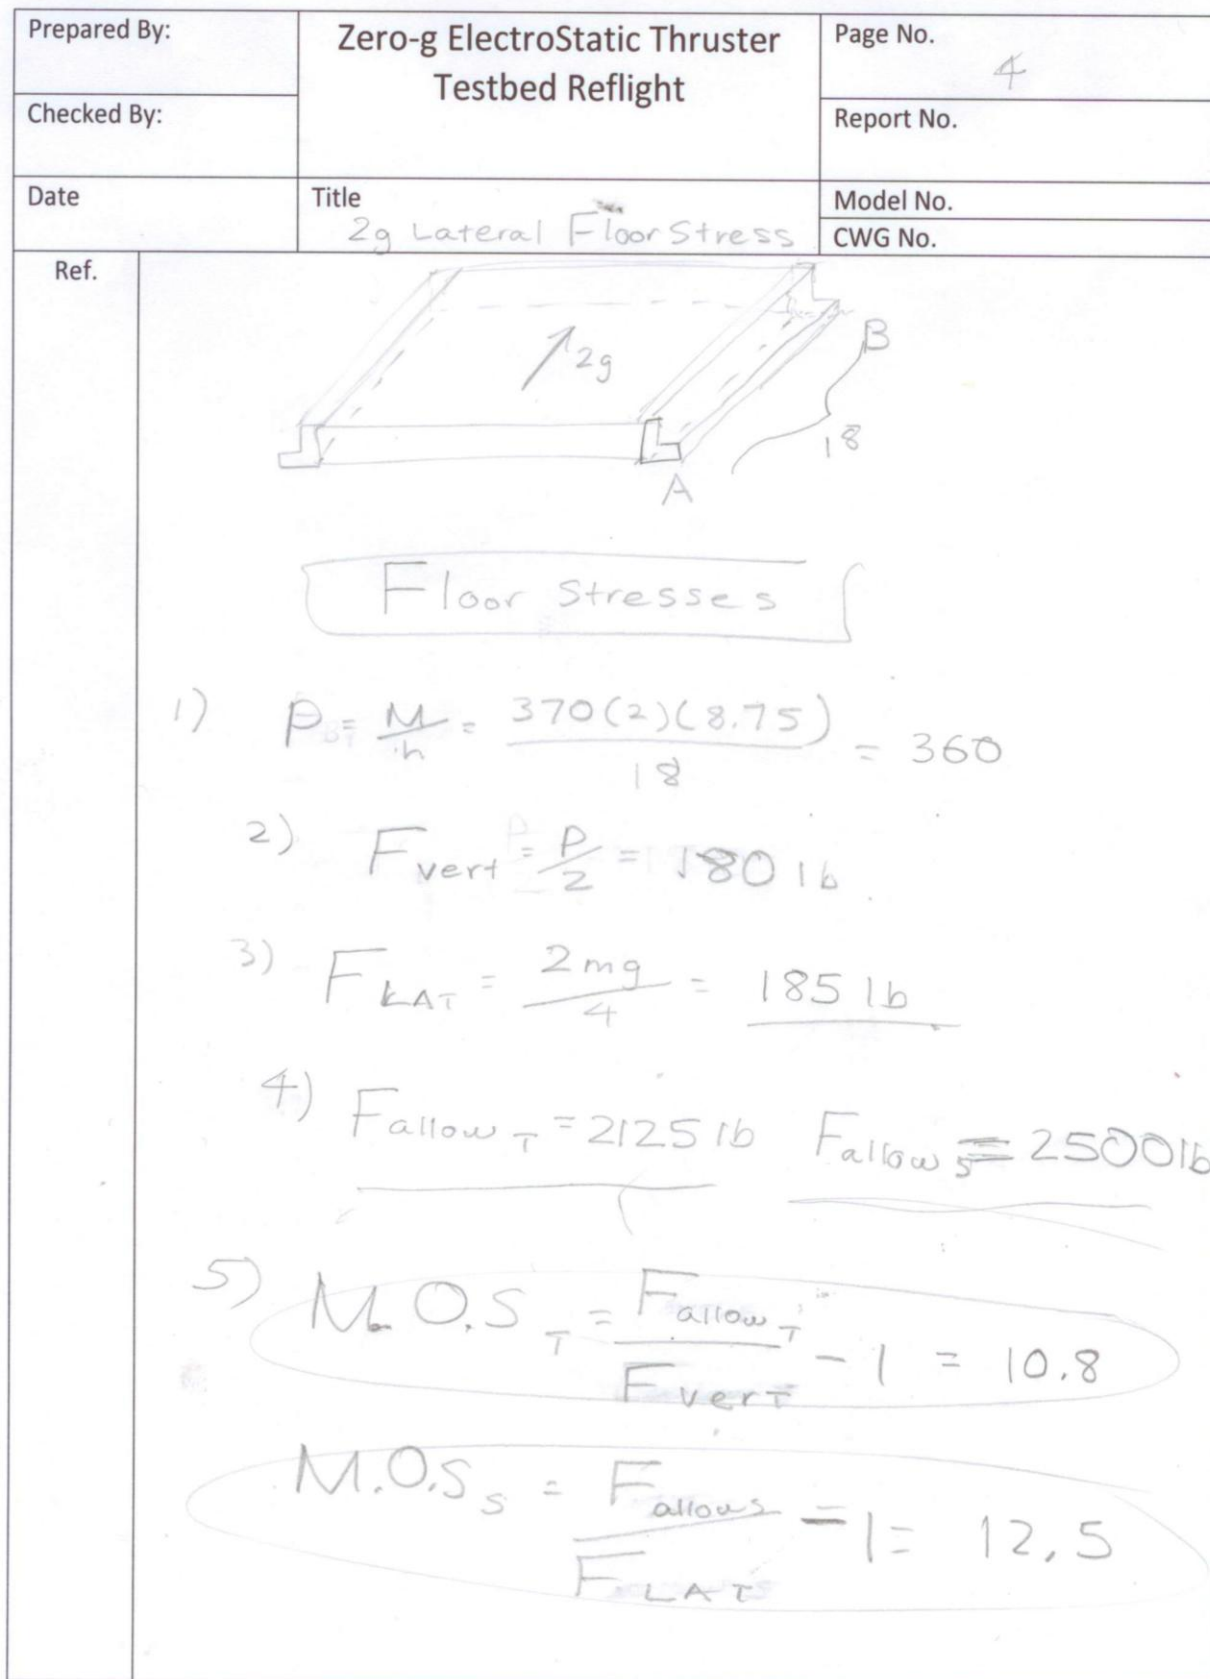 Prepared By:
Zero-g ElectroStatic Thruster
Testbed Reflight
Page No.
4
Checked By:
Report No.
Date
Title
2g Lateral Floor Stress
Model No.
CWG No.
Ref.
2g
B
18
A
Floor Stresses
1) P = M/h = 370(2)(8.75)/18 = 360
2) Fvert = P/2 = 180 lb
3) FLAT = 2mg/4 = 185 lb
4) Fallow T = 2125 lb Fallow S = 2500 lb
5) M.O.S T = Fallow T/Fvert - 1 = 10.8
M.O.S S = Fallow S/FLAT - 1 = 12.5